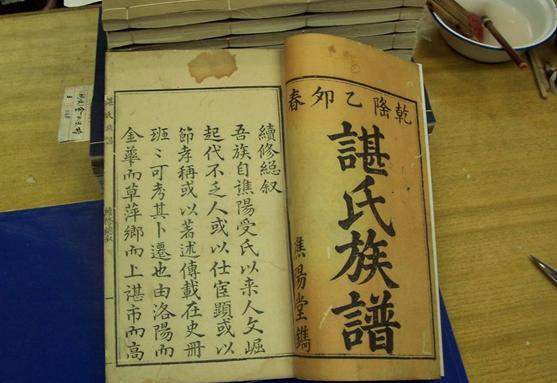 乾隆乙卯春
諶氏族譜
譙陽堂鐫
續修總叙
吾族自譙陽受氏以来人文崛
起代不乏人或以仕宦顯或以
節孝稱或以著述傳載在史冊
班〻可考其卜遷也由洛陽而
金華而草萍鄉而上谌市而高